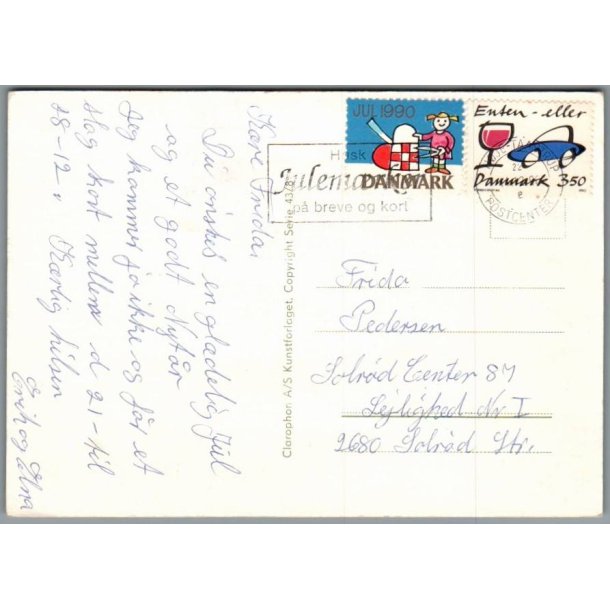 JUL 1990
DANMARK
Enten-eller
Danmark 3.50
Husk
Julemærket
på breve og kort
POSTCENTER
Kære Frida,
Du ønskes en glædelig Jul
og et godt Nytår
Jeg kommer jo ikke og får et
slag kort mellem d 21-til
28-12. Kærlig hilsen
Erik og Elna
Clarophon A/S Kunstforlaget, Copyright Serie 43/8
Frida
Pedersen
Solrød Center 84
Lejlighed Nr I
2680 Solrød Str.